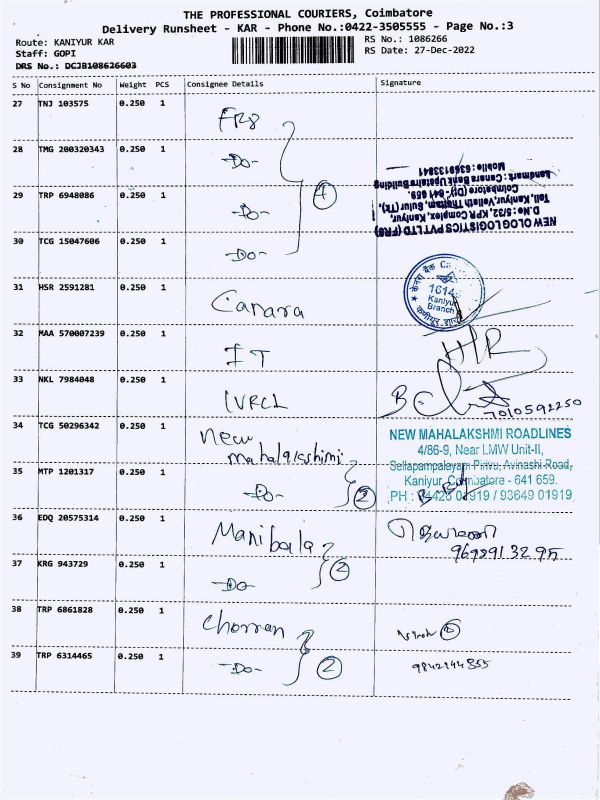 THE PROFESSIONAL COURIERS, Coimbatore
Delivery Runsheet - KAR - Phone No.:0422-3505555 - Page No.:3
Route: KANIYUR KAR
RS No.: 1086266
Staff: GOPI
RS Date: 27-Dec-2022
DRS No.: DCJB108626603
S No Consignment No Weight PCS Consignee Details Signature
27 TNJ 103575 0.250 1 FR8
28 TMG 200320343 0.250 1 -Do-
29 TRP 6948086 0.250 1 -Do- 4
30 TCG 15047606 0.250 1 -Do-
NEW OLOG LOGISTICS PVT LTD (FR8)
D.No: 5/32, KPR Complex, Kaniyur,
Toll, Kaniyur, Thattam, Sulur (TK),
Coimbatore (DT)- 641 659.
Landmark: Canara Bank Upstairs Building
Mobile: 6369133841
31 HSR 2591281 0.250 1 Canara
केनरा बैंक
1614
Kaniyur
Branch
32 MAA 570007239 0.250 1 IT
HR
33 NKL 7984048 0.250 1 IVRCL
7010592250
34 TCG 50296342 0.250 1 New mahalakshimi
35 MTP 1201317 0.250 1 -Do- 2
NEW MAHALAKSHMI ROADLINES
4/86-9, Near LMW Unit-II,
Sellapampalayam Pirivu, Avinashi Road,
Kaniyur, Coimbatore - 641 659.
PH : 94426 01919 / 93649 01919
36 EDQ 20575314 0.250 1 Manibala
37 KRG 943729 0.250 1 -Do- 2
38 TRP 6861828 0.250 1
39 TRP 6314465 0.250 1 -Do- 2
9842144355